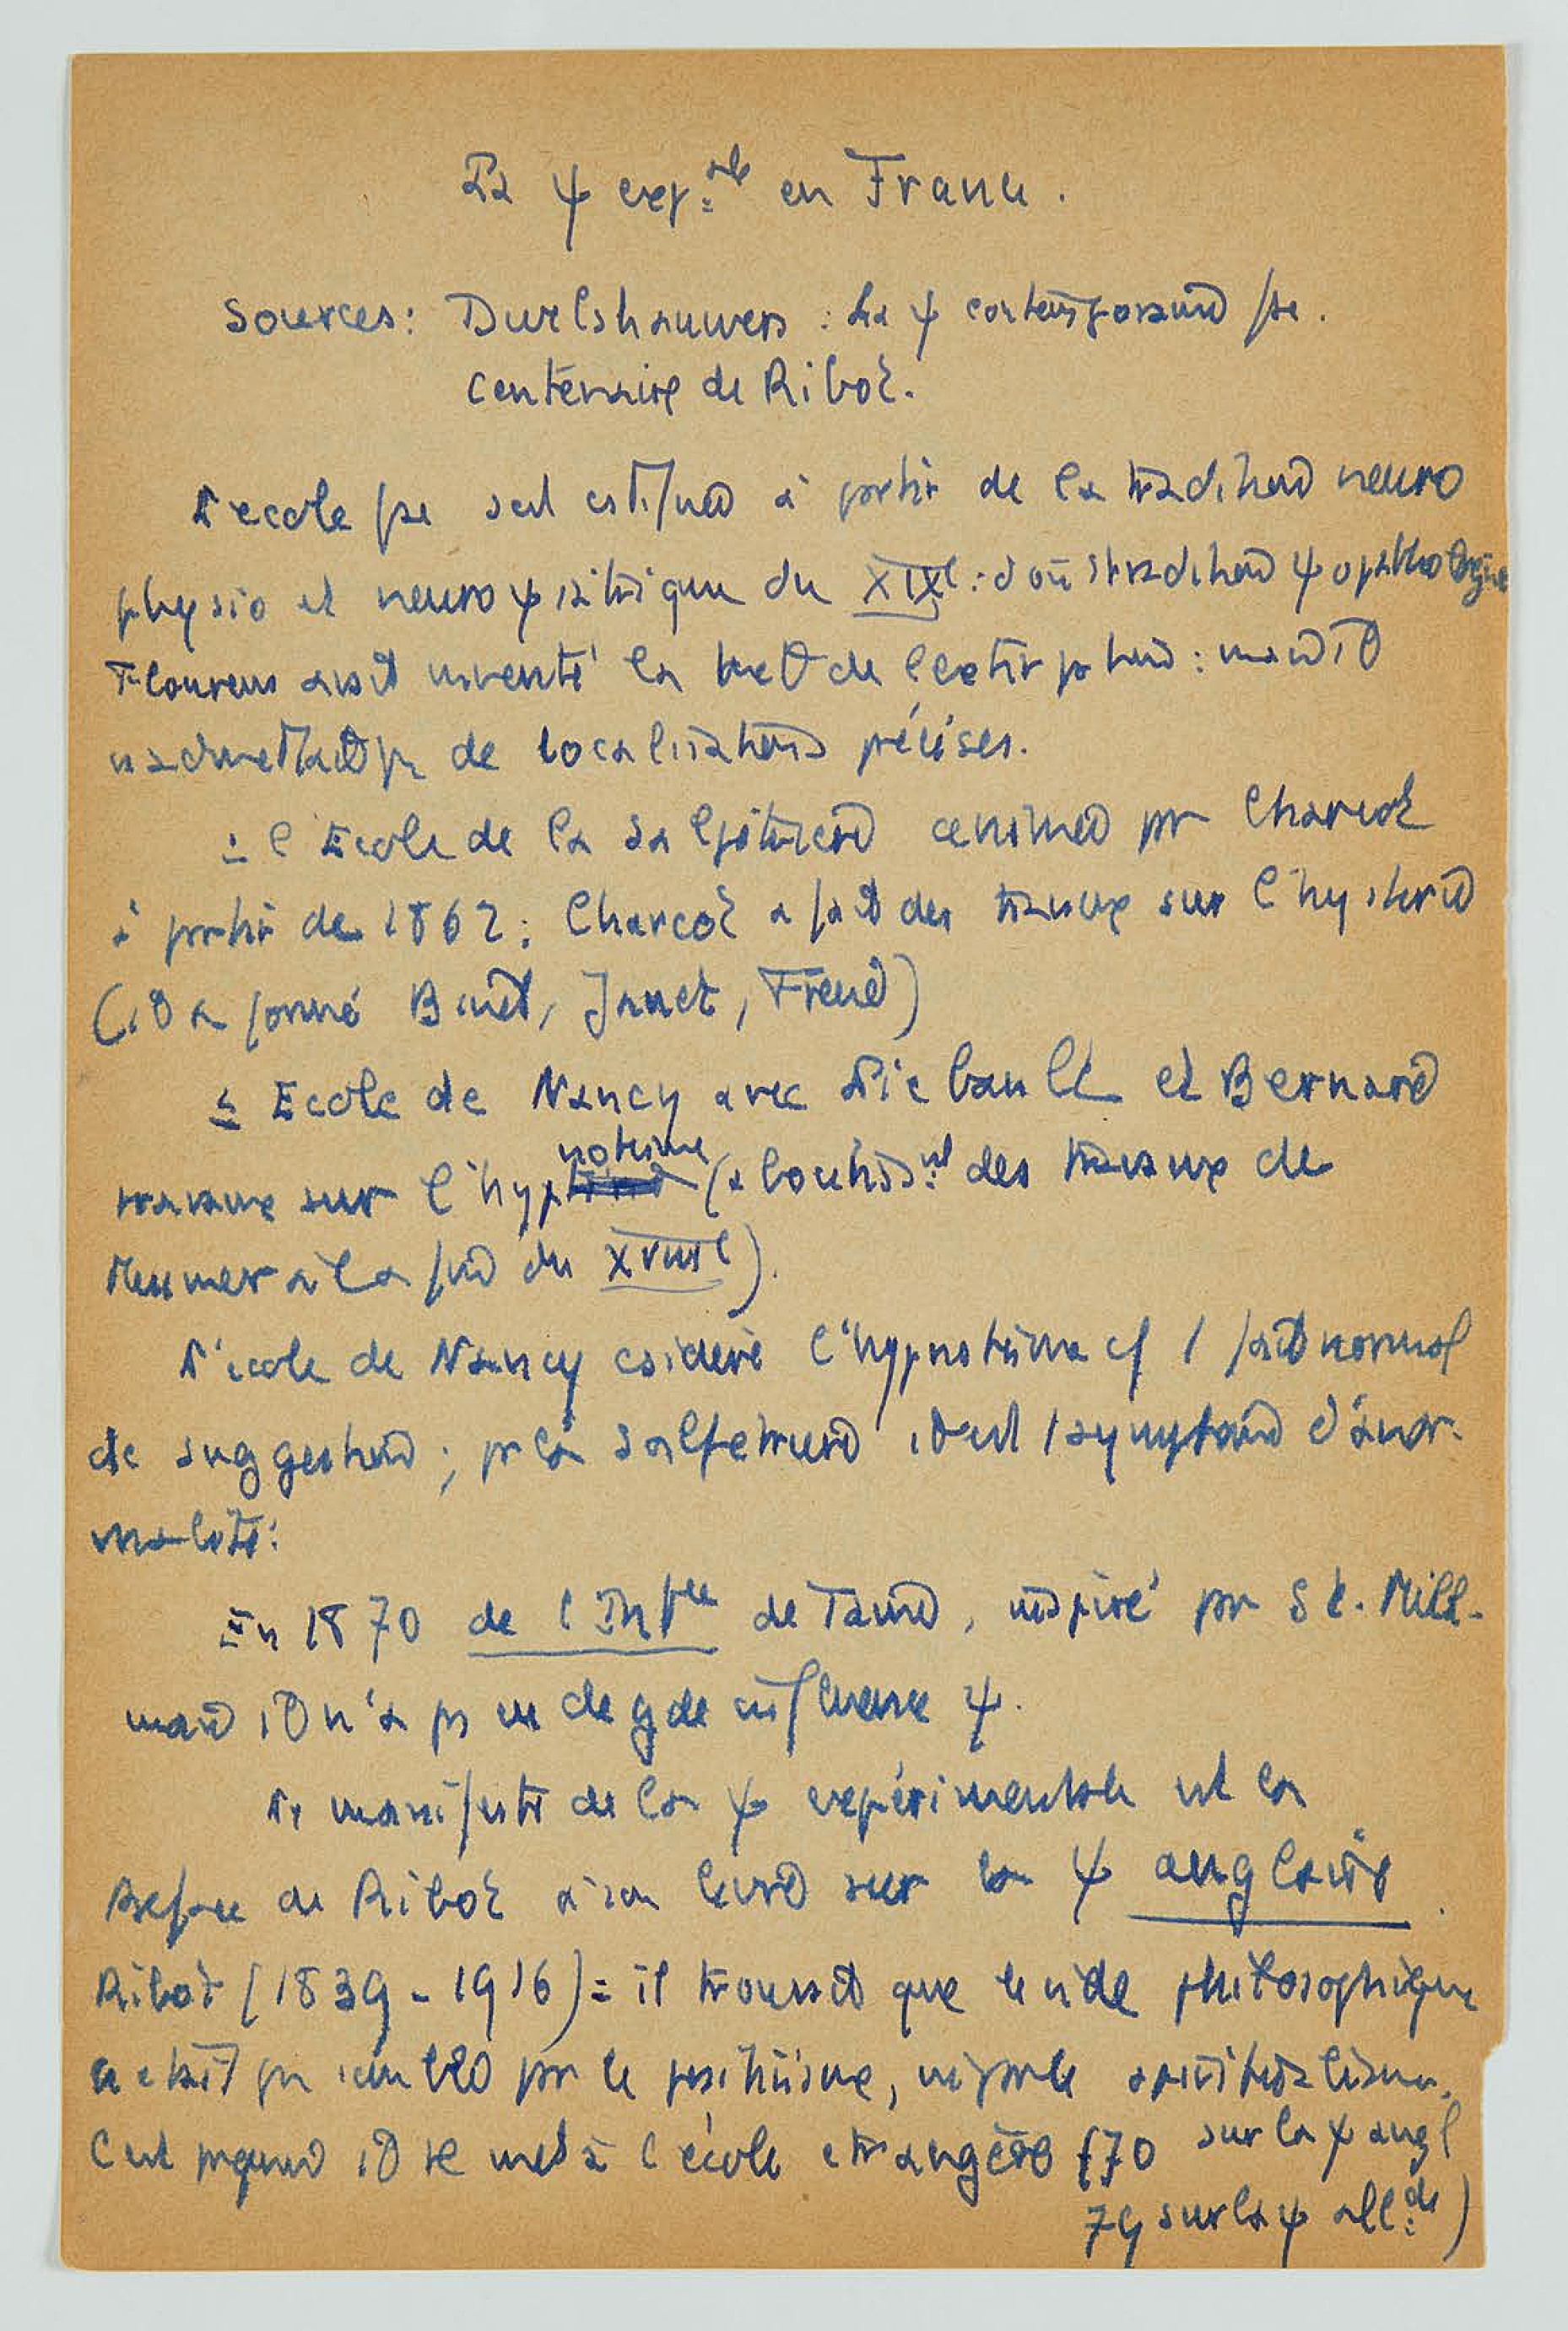 La ψ exp.ale en France.
Sources: Dwelshauwers : La ψ contemporaine fse.
Centenaire de Ribot.
L'ecole fse s'est à partir de la tradition neuro
physio et neuro ψiatrique du XIXe : d'où tradition ψopathologique
Flourens avait inventé la de l'extirpation : mais il
n'admettait pas de localisations précises.
= l'Ecole de la Salpêtrière par Charcot
à partir de 1862 : Charcot a fait des travaux sur l'hysterie
(il a formé Binet, Janet, Freud)
= Ecole de Nancy avec Liebault et Bernard
travaux sur l'hypnotisme (aboutiss.nt des travaux de
Mesmer à la fin du XVIIIe).
L'école de Nancy csidère l'hypnotisme cf 1 fait normal
de suggestion ; pr la Salpetriere il est 1 symptome d'anor-
malité.
En 1870 de l'Intce de Taine, inspiré par St. Mill.
mais il n'a pas eu de gde influence ψ.
Le manifeste de la ψ expérimentale est la
Preface de Ribot à son livre sur la ψ anglaise.
Ribot (1839-1916) = il trouvait que le vide philosophique
n'etait pas comblé par le positivisme, ni par le spiritualisme.
C'est pourquoi il se met à l'école etrangère (70 sur la ψ angl
79 sur la ψ all.de)